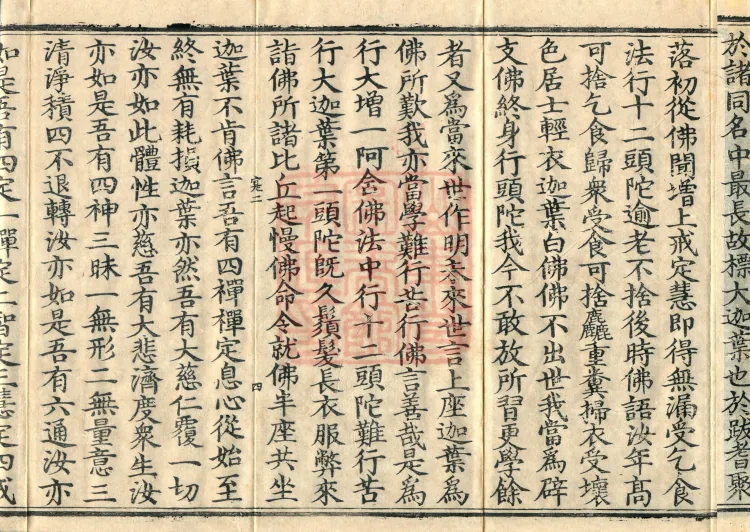 於諸同名中最長故標大迦葉也於跋耆聚
落初從佛聞增上戒定慧即得無漏受乞食
法行十二頭陀逾老不捨後時佛語汝年高
可捨乞食歸衆受食可捨麤重糞掃衣受壞
色居士輕衣迦葉白佛佛不出世我當爲辟
支佛終身行頭陀我今不敢放所習更學餘
者又爲當來世作明未來世言上座迦葉爲
佛所歎我亦當學難行苦行佛言善哉是爲
行大增一阿含佛法中行十二頭陀難行苦
行大迦葉第一頭陀既久鬚髮長衣服弊來
詣佛所諸比丘起慢佛命令就佛半座共坐
寔二
四
迦葉不肯佛言吾有四禪禪定息心從始至
終無有耗損迦葉亦然吾有大慈仁覆一切
汝亦如此體性亦慈吾有大悲濟度衆生汝
亦如是吾有四神三昧一無形二無量意三
清淨積四不退轉汝亦如是吾有六通汝亦
如是吾有四定一禪定二智定三慧定四戒